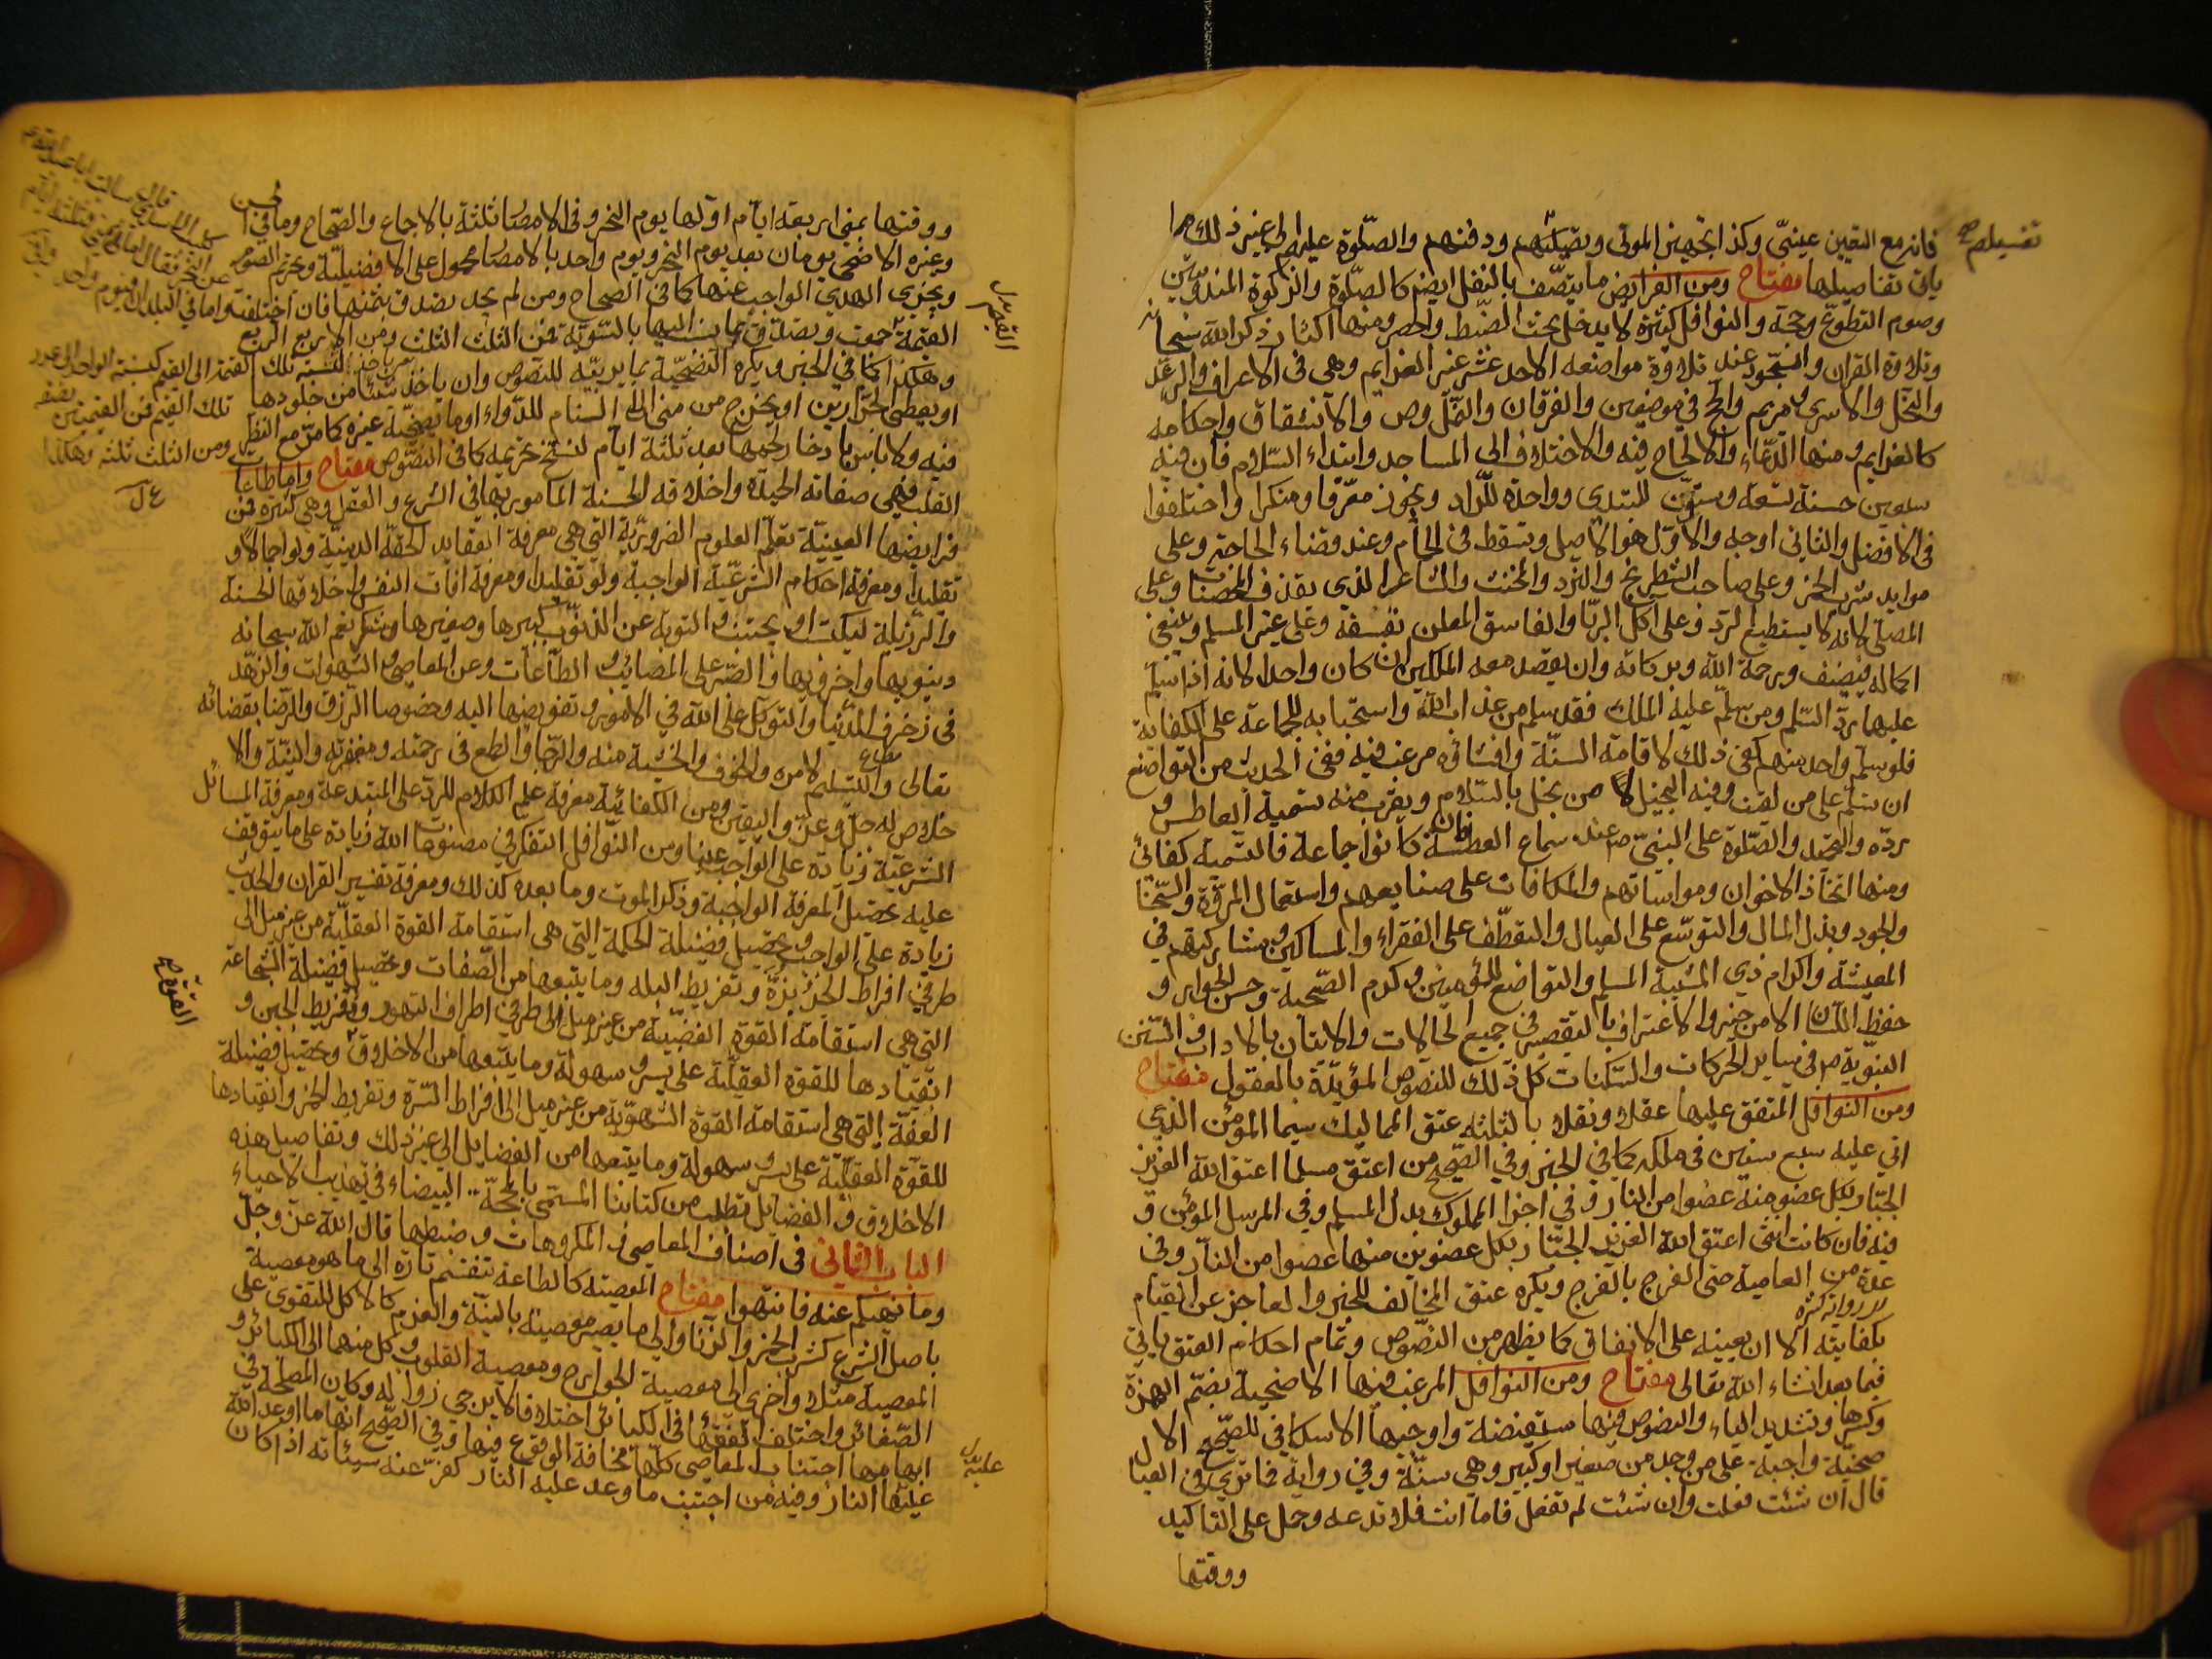 فانه مع التعيين عيني وكذا تجهيز الموتى وتغسيلهم ودفنهم والصلوة عليهم الى غير ذلك مما
ياتي تفاصيلها مفتاح ومن الفرايض ما يتصف بالنفل ايضا كالصلوة والزكوة المندوبتين
وصوم التطوع وحجه والنوافل كثيرة لا يدخل تحت الضبط والحصر ومنها اكثار ذكر الله سبحانه
وتلاوة القران والسجود عند تلاوة مواضعه الاحد عشر غير العزايم وهي في الاعراف والرعد
والنحل والاسرى ومريم والحج في موضعين والفرقان والنمل وص والانشقاق واحكامه
كالعزايم ومنها الدعاء والالحاح فيه والاختلاف الى المساجد وابتداء السلام فان فيه
سبعين حسنة تسعة وستون للمبتدى وواحدة للراد ويجوز معرفا ومنكرا واختلفوا
في الافضل والثاني اوجه والاول هو الاصل وتسقط في الحمام وعند قضاء الحاجة وعلى
موايد شرب الخمر وعلى صاحب الشطرنج والنرد والمخنث والشاعر الذي يقذف المحصنات وعلى
المصلي لانه لا يستطيع الرد وعلى اكل الربا والفاسق المعلن بفسقه وعلى غير المسلم وينبغي
اكماله فيضيف ورحمة الله وبركاته وان يقصد معه الملكين ان كان واحدا لانه اذا سلم
عليهما يرد السلم ومن سلم عليه الملك فقد سلم من عذاب الله واستحبابه للجماعة على الكفاية
فلو سلم واحد منهم كفى ذلك لاقامة السنة وافشاؤه مرغب فيه ففي الحديث من التواضع
ان تسلم على من لقيت وفيه البخيل من بخل بالسلام ويقرب منه تسمية العاطس و
رده والتحميد والصلوة على النبي ص عند سماع العطسة فان كانوا جماعة فالتسمية كفائي
ومنها اتخاذ الاخوان ومواساتهم والمكافات على صنايعهم واستعمال المروة والسخا
والجود وبذل المال والتوسع على العيال والتعطف على الفقراء والمساكين ومشاركتهم في
المعيشة واكرام ذي الشيبة المسلم والتواضع للمؤمنين وكرم الصحبة وحسن الجوار و
حفظ اللسان الا من خير والاعتراف بالتقصير في جميع الحالات والاتيان بالاداب والسنن
النبوية ص في ساير الحركات والسكنات كل ذلك للنصوص المؤيدة بالعقول مفتاح
ومن النوافل المتفق عليها عقلا ونقلا بالثلثه عتق المماليك سيما المؤمن الذي
اتي عليه سبع سنين في ملكه كما في الخبر وفي الصحيح من اعتق مسلما اعتق الله العزيز
الجبار بكل عضو منه عضوا من النار وفي اخر المملوك بدل المسلم وفي المرسل المؤمن و
فيه فان كانت انثى اعتق الله العزيز الجبار بكل عضوين منها عضوا من النار وفي
عدة من العامية حتى الفرج بالفرج ويكره عتق المخالف للخبر والعاجز عن القيام
بكفايته الا ان يعينه على الانفاق كما يظهر من النصوص وتمام احكام العتق ياتي
فيما بعد انشاء الله تعالى مفتاح ومن النوافل المرغب فيها الاضحية بضم الهمزة
وكسرها وتشديد الياء والنصوص فيها مستفيضة واوجبها الاسكافي للصحيح الا
ضحية واجبة على من وجد من صغير او كبير وهي سنة وفي رواية فما ترى في العيال
قال ان شئت فعلت وان شئت لم تفعل فاما انت فلا تدعه وحمل على التاكيد
ووقتها
ووقتها بمنى اربعة ايام اولها يوم النحر وفي الامصار ثلثة بالاجماع والصحاح وما في الحسن
وغيره الاضحى يومان بعد يوم النحر ويوم واحد بالامصار محمول على الافضلية وتحريم الصوم
ويجزي الهدي الواجب عنها كما في الصحاح ومن لم يجد تصدق بثمنها فان اختلفت
القيمة جمعت وتصدق بما ينسب اليها بالتسوية فمن الثلث الثلث ومن الاربع الربع
وهكذا كما في الخبر ويكره التضحية بما يربيه للنصوص وان ياخذ شيئا من جلودها
او يعطى الجزارين او يخرج من منى الا السنام للدواء او ما يضحيه غيره كما مر مع النظر
فيه ولا باس بادخار لحمها بعد ثلثة ايام لنسخ تحريمه كما في النصوص مفتاح واما طاعات
القلب فهي صفاته الجيدة واخلاقه الحسنة المامور بها في الشرع والعقل وهي كثيرة فمن
فرايضها العينية تعلم العلوم الضرورية التي هي معرفة العقايد الحقة الدينية ولو اجمالا او
تقليدا ومعرفة احكام الشرعية الواجبة ولو تقليدا ومعرفة افات النفس واخلاقها الحسنة
والرزيلة ليكتسب او يجتنب والتوبة عن الذنوب كبيرها وصغيرها وشكر نعم الله سبحانه
دنيويها واخرويها والصبر على المصائب والطاعات وعن المعاصي والشهوات والزهد
في زخرف الدنيا والتوكل على الله في الامور وتفويضها اليه وخصوصا الرزق والرضا بقضائه
تعالى والتسليم لامره والخوف والخشية منه والرجا والطمع في رحمته ومغفرته والنية والا
خلاص له جل وعز واليقين ومن الكفائية معرفة علم الكلام للرد على المبتدعة ومعرفة المسائل
الشرعية زيادة على الواجب عينا ومن النوافل التفكر في مصنوعات الله زيادة على ما يتوقف
عليه تحصيل المعرفة الواجبة وذكر الموت وما بعده كذلك ومعرفة تفسير القران والحديث
زيادة على الواجب وتحصيل فضيلة الحكمة التي هي استقامة القوة العقلية من غير ميل الى
طرفي افراط الجربزة وتفريط البله وما يتبعها من الصفات وتحصيل فضيلة الشجاعة
التي هي استقامة القوة الغضبية من غير ميل الى طرفي افراط التهور وتفريط الجبن و
انقيادها للقوة العقلية على يسر وسهولة وما يتبعها من الاخلاق وتحصيل فضيلة
العفة التي هي استقامة القوة الشهوية من غير ميل الى افراط الشره وتفريط الخمود وانقيادها
للقوة العقلية على يسر وسهولة وما يتبعها من الفضايل الى غير ذلك وتفاصيل هذه
الاخلاق والفضايل تطلب من كتابنا المسمى بالمحجة البيضاء في تهذيب الاحياء
الباب الثاني في اصناف المعاصي والمكروهات وضبطها قال الله عز وجل
وما نهيكم عنه فانتهوا مفتاح المعصية كالطاعة تنقسم تارة الى ما هو معصية
باصل الشرع كشرب الخمر والزنا والى ما يصير معصية بالنية والعزم كالاكل للتقوي على
المعصية مثلا واخرى الى معصية الجوارح ومعصية القلوب وكل منهما الى الكبائر و
الصغائر واختلف الفقهاء في الكبائر اختلافا لا يرجى زواله وكان المصلحة في
ابهامها اجتناب المعاصي كلها مخافة الوقوع فيها وفي الصحيح انها ما اوعد الله
عليها النار وفيه من اجتنب ما وعد عليه النار كفر عنه سيئاته اذا كان